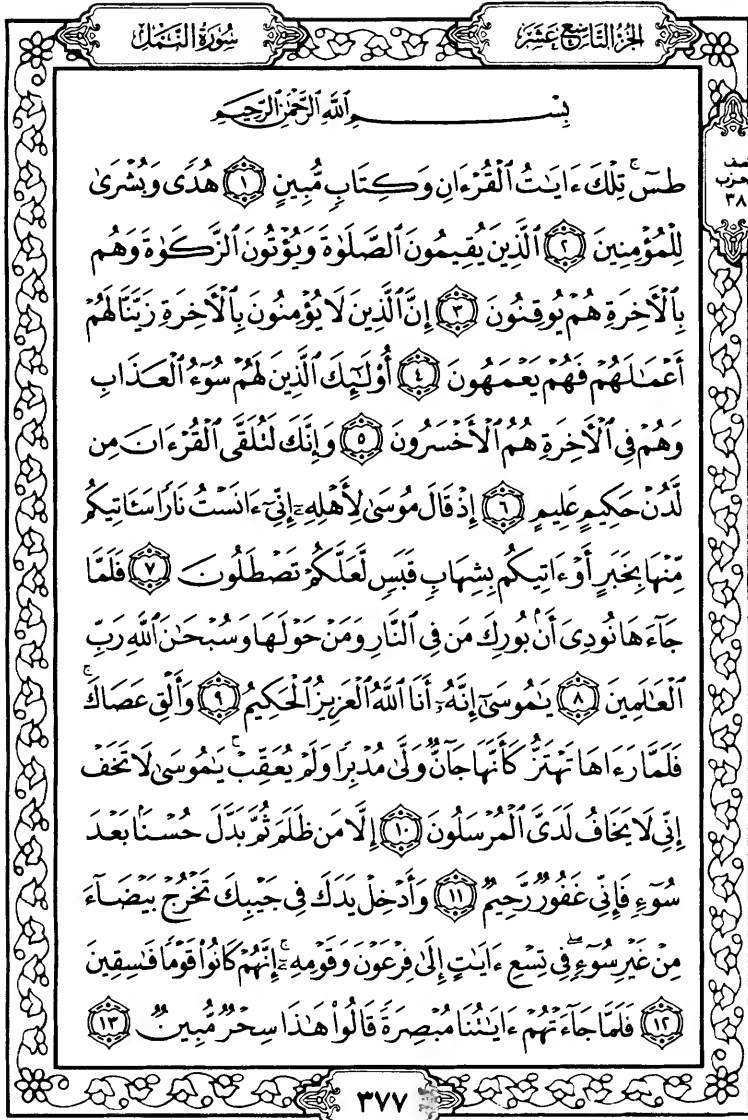 الجزء التاسع عشر
سورة النمل
نصف
الحزب
٣٨
بِسْمِ ٱللَّهِ ٱلرَّحْمَٰنِ ٱلرَّحِيمِ
طسٓ ۚ تِلْكَ ءَايَٰتُ ٱلْقُرْءَانِ وَكِتَابٍ مُّبِينٍ ١ هُدًى وَبُشْرَىٰ
لِلْمُؤْمِنِينَ ٢ ٱلَّذِينَ يُقِيمُونَ ٱلصَّلَوٰةَ وَيُؤْتُونَ ٱلزَّكَوٰةَ وَهُم
بِٱلْأَخِرَةِ هُمْ يُوقِنُونَ ٣ إِنَّ ٱلَّذِينَ لَا يُؤْمِنُونَ بِٱلْأَخِرَةِ زَيَّنَّا لَهُمْ
أَعْمَٰلَهُمْ فَهُمْ يَعْمَهُونَ ٤ أُو۟لَٰٓئِكَ ٱلَّذِينَ لَهُمْ سُوٓءُ ٱلْعَذَابِ
وَهُمْ فِى ٱلْأَخِرَةِ هُمُ ٱلْأَخْسَرُونَ ٥ وَإِنَّكَ لَتُلَقَّى ٱلْقُرْءَانَ مِن
لَّدُنْ حَكِيمٍ عَلِيمٍ ٦ إِذْ قَالَ مُوسَىٰ لِأَهْلِهِۦٓ إِنِّىٓ ءَانَسْتُ نَارًا سَـَٔاتِيكُم
مِّنْهَا بِخَبَرٍ أَوْ ءَاتِيكُم بِشِهَابٍ قَبَسٍ لَّعَلَّكُمْ تَصْطَلُونَ ٧ فَلَمَّا
جَآءَهَا نُودِىَ أَنۢ بُورِكَ مَن فِى ٱلنَّارِ وَمَنْ حَوْلَهَا وَسُبْحَٰنَ ٱللَّهِ رَبِّ
ٱلْعَٰلَمِينَ ٨ يَٰمُوسَىٰٓ إِنَّهُۥٓ أَنَا ٱللَّهُ ٱلْعَزِيزُ ٱلْحَكِيمُ ٩ وَأَلْقِ عَصَاكَ ۚ
فَلَمَّا رَءَاهَا تَهْتَزُّ كَأَنَّهَا جَآنٌّ وَلَّىٰ مُدْبِرًا وَلَمْ يُعَقِّبْ ۚ يَٰمُوسَىٰ لَا تَخَفْ
إِنِّى لَا يَخَافُ لَدَىَّ ٱلْمُرْسَلُونَ ١٠ إِلَّا مَن ظَلَمَ ثُمَّ بَدَّلَ حُسْنًۢا بَعْدَ
سُوٓءٍ فَإِنِّى غَفُورٌ رَّحِيمٌ ١١ وَأَدْخِلْ يَدَكَ فِى جَيْبِكَ تَخْرُجْ بَيْضَآءَ
مِنْ غَيْرِ سُوٓءٍ ۖ فِى تِسْعِ ءَايَٰتٍ إِلَىٰ فِرْعَوْنَ وَقَوْمِهِۦٓ ۚ إِنَّهُمْ كَانُوا۟ قَوْمًا فَٰسِقِينَ
١٢ فَلَمَّا جَآءَتْهُمْ ءَايَٰتُنَا مُبْصِرَةً قَالُوا۟ هَٰذَا سِحْرٌ مُّبِينٌ ١٣
٣٧٧